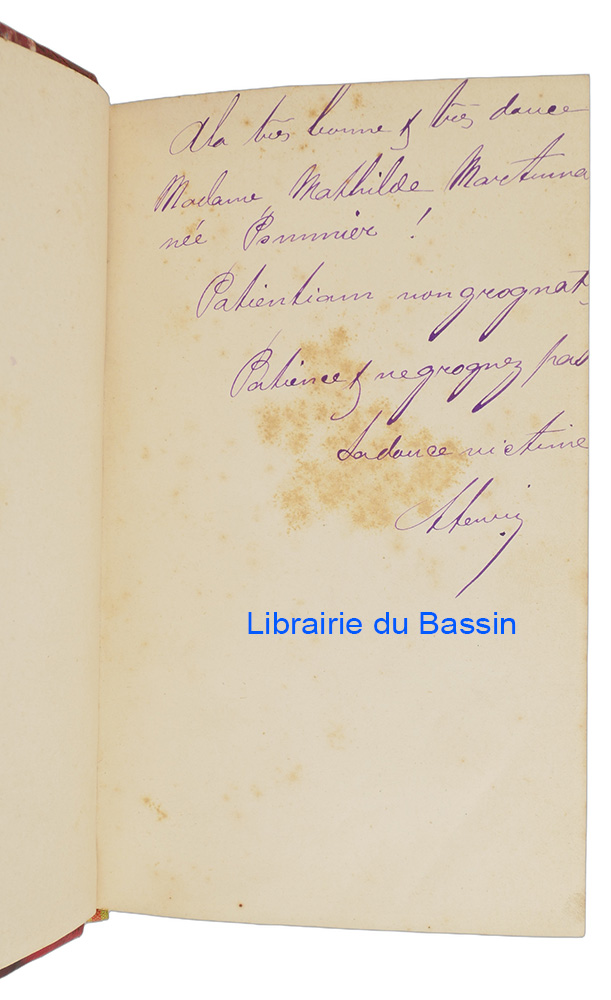 A la très bonne & très douce
Madame Mathilde Martinna
née Pommier !
Patientiam non grognat.
Patience & ne grognez pas
La douce victime
Henri
Librairie du Bassin